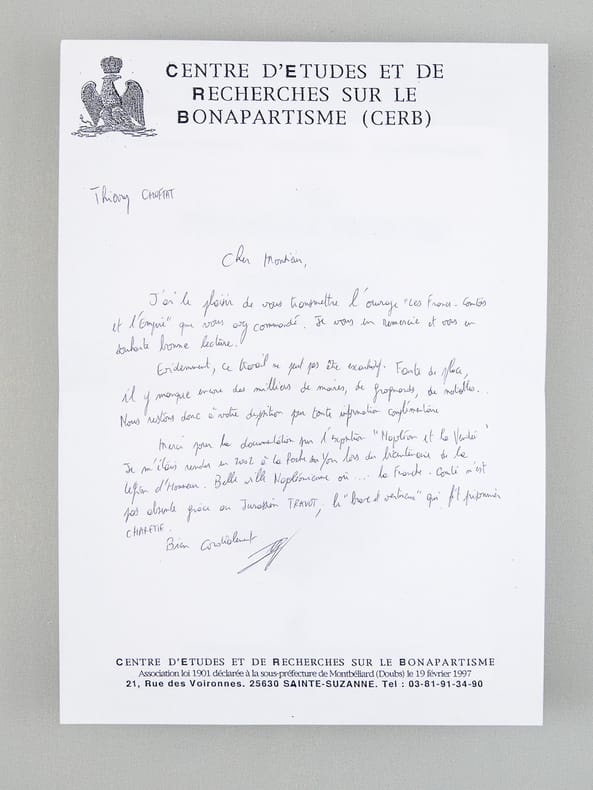 CENTRE D'ETUDES ET DE
RECHERCHES SUR LE
BONAPARTISME (CERB)
Thierry CHOFFAT
Cher Monsieur,
J'ai le plaisir de vous transmettre l'ouvrage "Les Francs-Comtois
et l'Empire" que vous avez commandé. Je vous en remercie et vous en
souhaite bonne lecture.
Evidemment, ce travail ne peut pas être exhaustif. Faute de place,
il y manque encore des milliers de maires, de grognards, de notables..
Nous restons donc à votre disposition pour toute information complémentaire
Merci pour la documentation sur l'exposition "Napoléon et la Vendée"
Je m'étais rendu en 2002 à la Roche sur Yon lors du bicentenaire de la
Légion d'Honneur. Belle ville Napoléonienne où .... la Franche-Comté n'est
pas absente grâce au Jurassien TRAVOT, le "brave et vertueux" qui fit prisonnier
CHARETTE.
Bien Cordialement
CENTRE D'ETUDES ET DE RECHERCHES SUR LE BONAPARTISME
Association loi 1901 déclarée à la sous-préfecture de Montbéliard (Doubs) le 19 février 1997
21, Rue des Voironnes. 25630 SAINTE-SUZANNE. Tel : 03-81-91-34-90